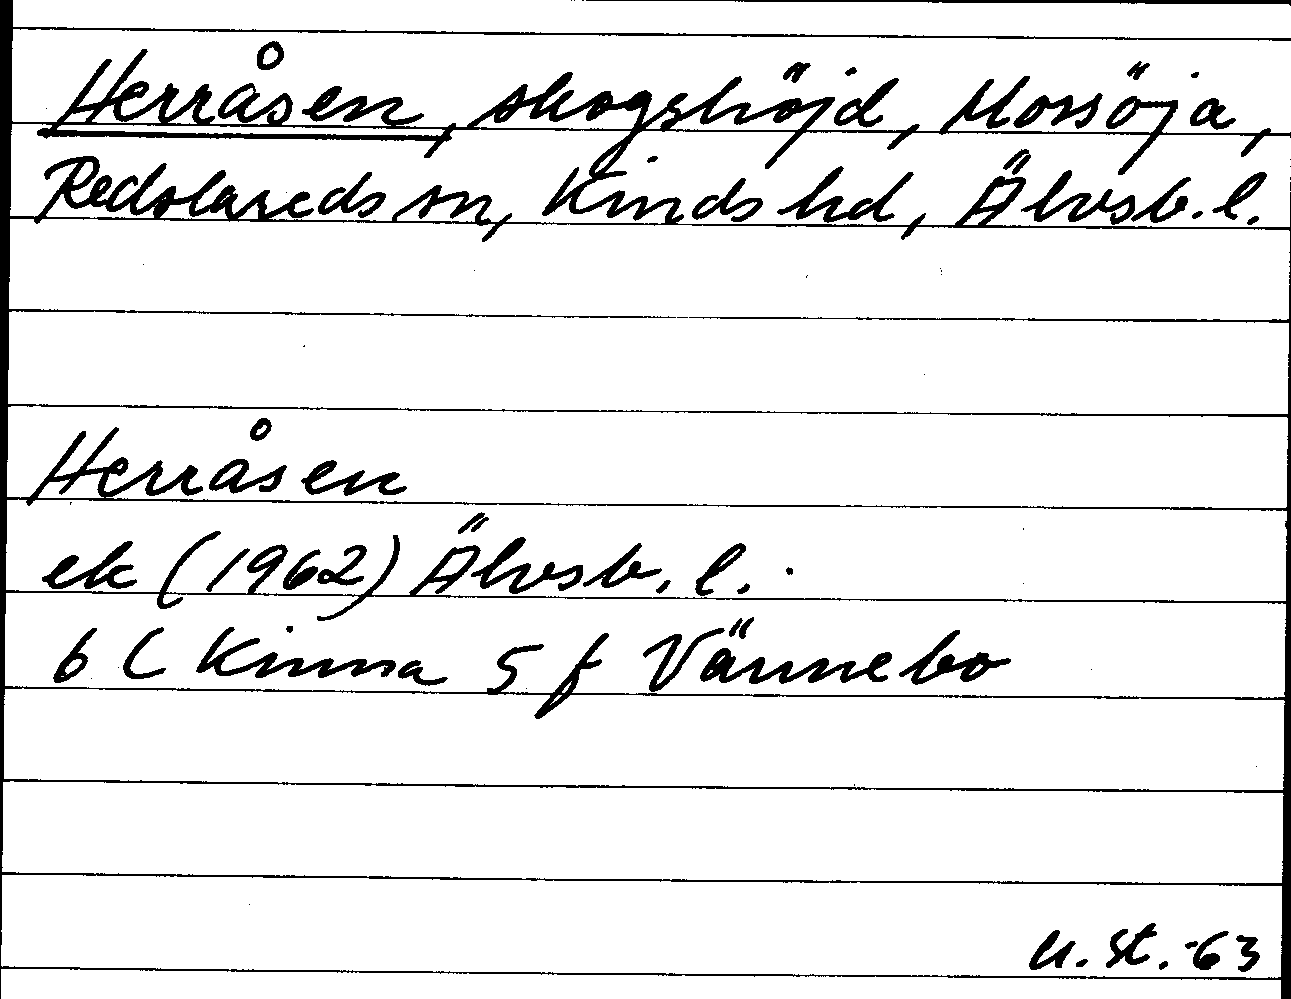 Herråsen, skogshöjd, Mossöja,
Redslareds sn, Kinds hd, Älvsb. l.
Herråsen
ek (1962) Älvsb. l.
6 C Kinna 5 f Vännebo
U. St. -63